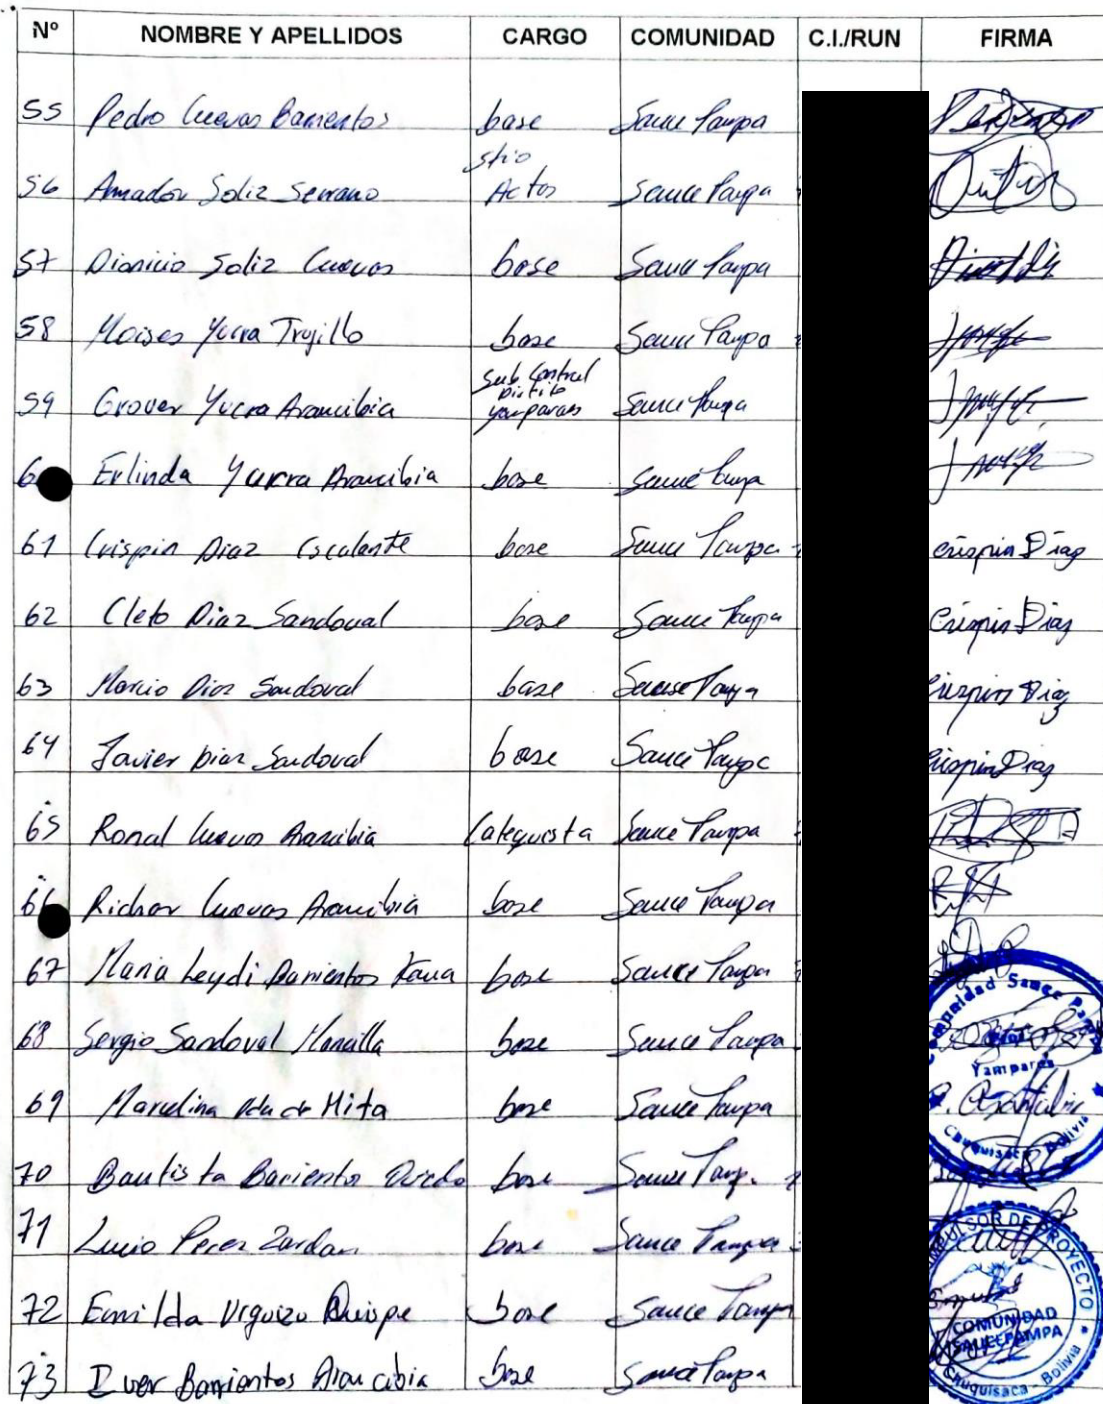 Nº NOMBRE Y APELLIDOS CARGO COMUNIDAD C.I./RUN FIRMA
55 Pedro Cuevas Barrientos base Sauce Pampa
56 Amador Soliz Serrano stio Actas Sauce Pampa
57 Dionicio Soliz Cuevas base Sauce Pampa
58 Moises Yucra Trujillo base Sauce Pampa
59 Grover Yucra Arancibia Sub Central Yamparaes Sauce Pampa
6 Erlinda Yucra Arancibia base Sauce Pampa
61 Crispin Diaz Escalante base Sauce Pampa Crispin Diaz
62 Cleto Diaz Sandoval base Sauce Pampa Crispin Diaz
63 Marcio Diaz Sandoval base Sauce Pampa Crispin Diaz
64 Javier Diaz Sandoval base Sauce Pampa Crispin Diaz
65 Ronal Cuevas Arancibia Catequista Sauce Pampa
66 Richar Cuevas Arancibia base Sauce Pampa
67 Maria Leydi Barrientos base Sauce Pampa
Comunidad Sauce Pampa
68 Sergio Sandoval Mancilla base Sauce Pampa
Yamparaes
69 Marcelina Vda de Mita base Sauce Pampa
Chuquisaca - Bolivia
70 Bautista Barriento base Sauce Pamp.
71 Lucio Perez Zardan base Sauce Pampa
IMPULSOR DE PROYECTO
72 Emilda Urguizo Quispe base Sauce Pampa
COMUNIDAD
SAUCEPAMPA
73 Iver Barrientos Arancibia base Sauce Pampa
Chuquisaca - Bolivia